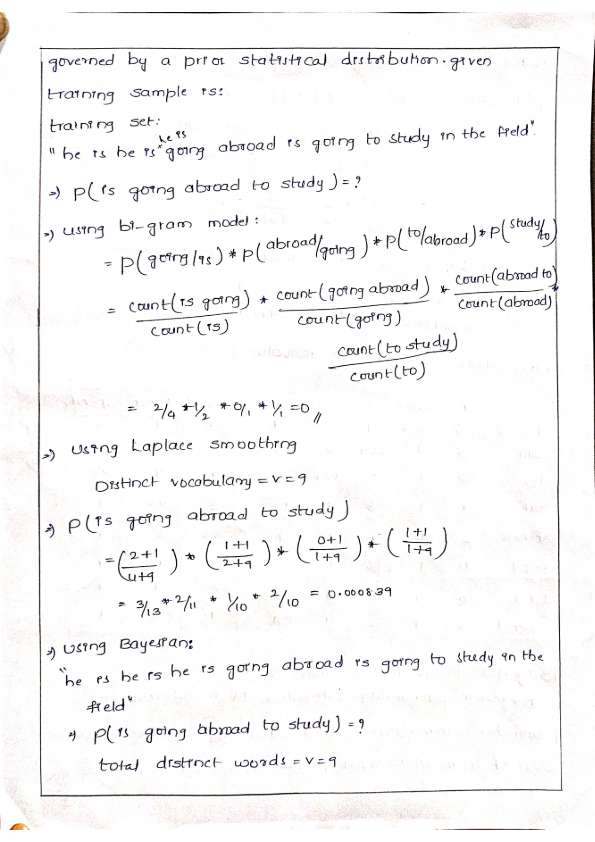 governed by a prior statistical distribution. given
training sample is:
training set:
he is
" he is he is going abroad is going to study in the field".
⇒) P(is going abroad to study) = ?
⇒) using bi-gram model:
= P(going/is) * P(abroad/going) * P(to/abroad) * P(study/to)
= count(is going)/count(is) * count(going abroad)/count(going) * count(abroad to)/count(abroad)
count(to study)/count(to)
= 2/4 * 1/2 * 0/1 * 1/1 = 0 //
⇒) using Laplace smoothing
Distinct vocabulary = v = 9
⇒) P(is going abroad to study)
= (2+1/4+9) * (1+1/2+9) * (0+1/1+9) * (1+1/1+9)
= 3/13 * 2/11 * 1/10 * 2/10 = 0.000839
⇒) using Bayesian:
"he is he is he is going abroad is going to study in the
field"
⇒ P(is going abroad to study) = ?
total distinct words = v = 9